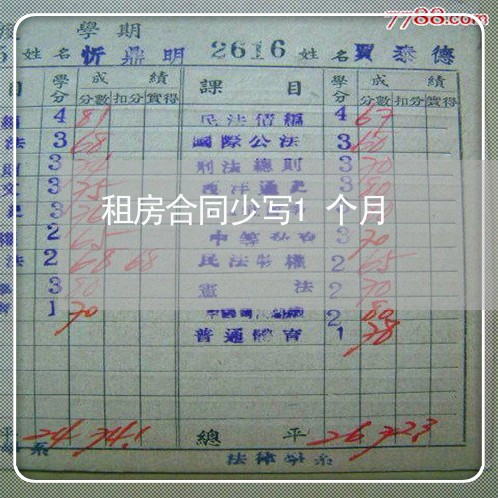 7788.com
學期
姓名 忻鼎明 2616 姓名 賈泰德
目 學分 成績 課目 學分 成績
分數 扣分 實得 分數 扣分 實得
4 81 民法債編 4 67
法 3 68 國際公法 3 60
3 刑法總則 3 70
3 75 西洋通史 3 80
租房合同少写1个月
2 65 3 70
法 2 68 68 民法物權 2 65
3 80 憲法 2 70
1 70 2 80
普通體育 1 78
平 24 74.1 總平 26 72.3
系 法律學系